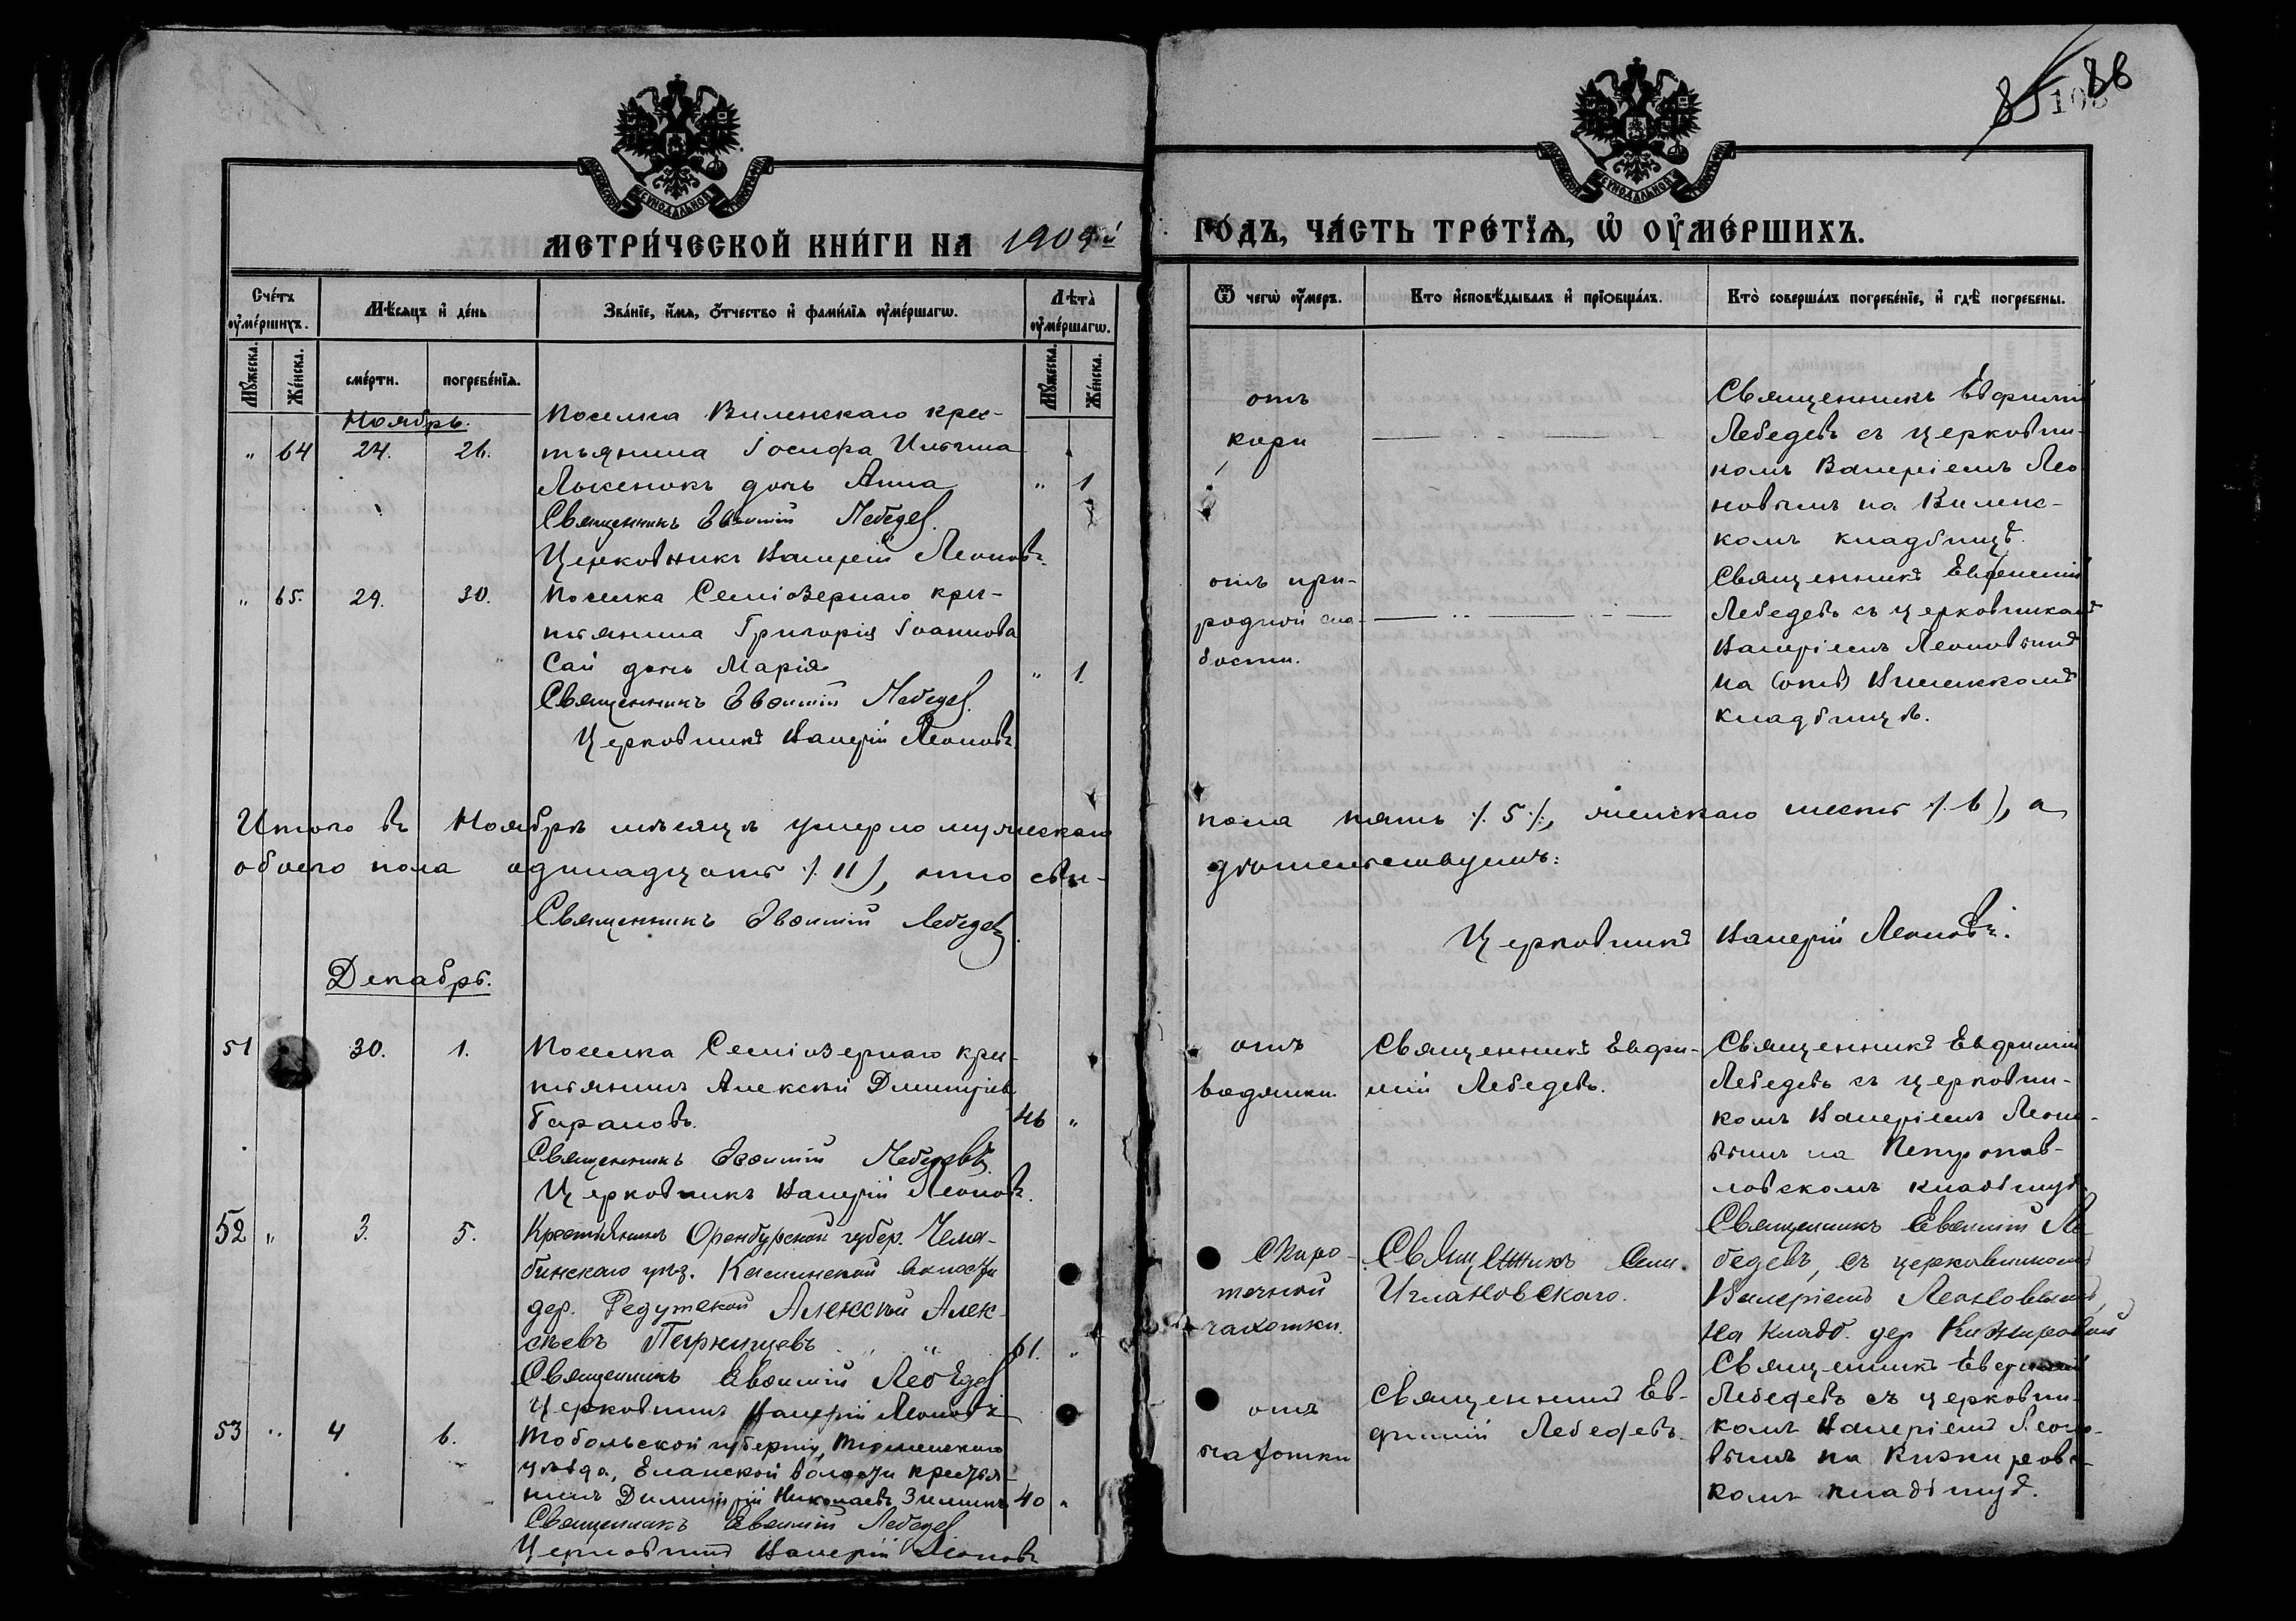 85 86
СѴНОДАЛЬНОЙ
СѴНОДАЛЬНОЙ
МЕТРИ́ЧЕСКОЙ КНИ́ГИ НА 1909й
ГО́ДЪ, ЧА́СТЬ ТРЕ́ТЇѦ, Ѡ҆ ОУ҆МЕ́РШИХЪ.
Сче́тъ оу҆ме́ршихъ.
Мѣ́сѧцъ и҆ де́нь
Зва́нїе, и҆́мѧ, ѻ҆́тчество и҆ фами́лїѧ оу҆ме́ршагѡ.
Лѣта̀ оу҆ме́ршагѡ.
Мꙋ́жеска. Же́нска. сме́рти. погребе́нїѧ. Мꙋ́жеска. Же́нска.
Ѿ чегѡ̀ оу҆́меръ.
Кто̀ и҆сповѣ́дывалъ и҆ прїѡбща́лъ.
Кто̀ соверша́лъ погребе́нїе, и҆ гдѣ̀ погребены̀.
Ноябрь.
" 64 24. 26.
Поселка Виленскаго крес-
тьянина Іосифа Ильина
дочь Анна " 1
Священникъ Евѳимій Лебедев.
Церковникъ Валерій Леоновъ.
отъ
кори
Священникъ Евфимій
Лебедевъ съ церковни-
комъ Валеріемъ Лео
новымъ на Виленс-
комъ кладбищѣ.
" 65. 29. 30.
Поселка Семіозернаго кре-
стьянина Григорія Іоаннова
Сай дочь Марія " 1.
Священникъ Евѳимій Лебедев.
Церковникъ Валерій Леоновъ.
отъ при-
родной сла-
бости.
Священникъ Евфимій
Лебедевъ съ церковникомъ
Валеріемъ Леоновымъ
на кладбищѣ.
Итого въ Ноябрѣ мѣсяцѣ умерло мужескаго
пола пять /.5./, женскаго шесть /.6/, а
обоего пола одинадцать /.11/, что сви-
дѣтельствуемъ:
Священникъ Евѳимій Лебедевъ
Церковникъ Валерій Леоновъ.
Декабрь.
51 30. 1.
Поселка Семіозернаго кре-
стьянинъ Алексѣй Димитріев
Тарановъ. 46 "
Священникъ Евѳимій Лебедевъ.
Церковникъ Валерій Леоновъ.
отъ
водянки.
Священникъ Евфи-
мій Лебедевъ.
Священникъ Евфимій
Лебедевъ съ церковни-
комъ Валеріемъ Леоно-
вымъ на Петропав-
ловскомъ кладбищѣ.
52 " 3. 5.
Крестьянинъ Оренбургской губер. Челя-
бинскаго уѣз. волости
дер. Редутской Алексѣй Алек-
сѣевъ 61. "
Священникъ Евѳимій Лебедев
Церковникъ Валерій Леоновъ
Скоро-
течной
чахотки.
Священникъ Сем.
Углановскаго.
Священникъ Евѳимій Ле
бедевъ, съ церковникомъ
Валеріемъ Леоновымъ,
на кладб. дер.
53 " 4 6.
Тобольской губерніи, Тюменского
уѣзда, Еланской волости крестья-
нинъ Димитрій Николаевъ Зиминъ 40 "
Священникъ Евѳимій Лебедев
Церковникъ Валерій Леоновъ
отъ
чахотки
Священникъ Ев-
фимій Лебедевъ.
Священникъ Евфимій
Лебедевъ съ церковни-
комъ Валеріемъ Леоно-
вымъ на
комъ кладбищѣ.